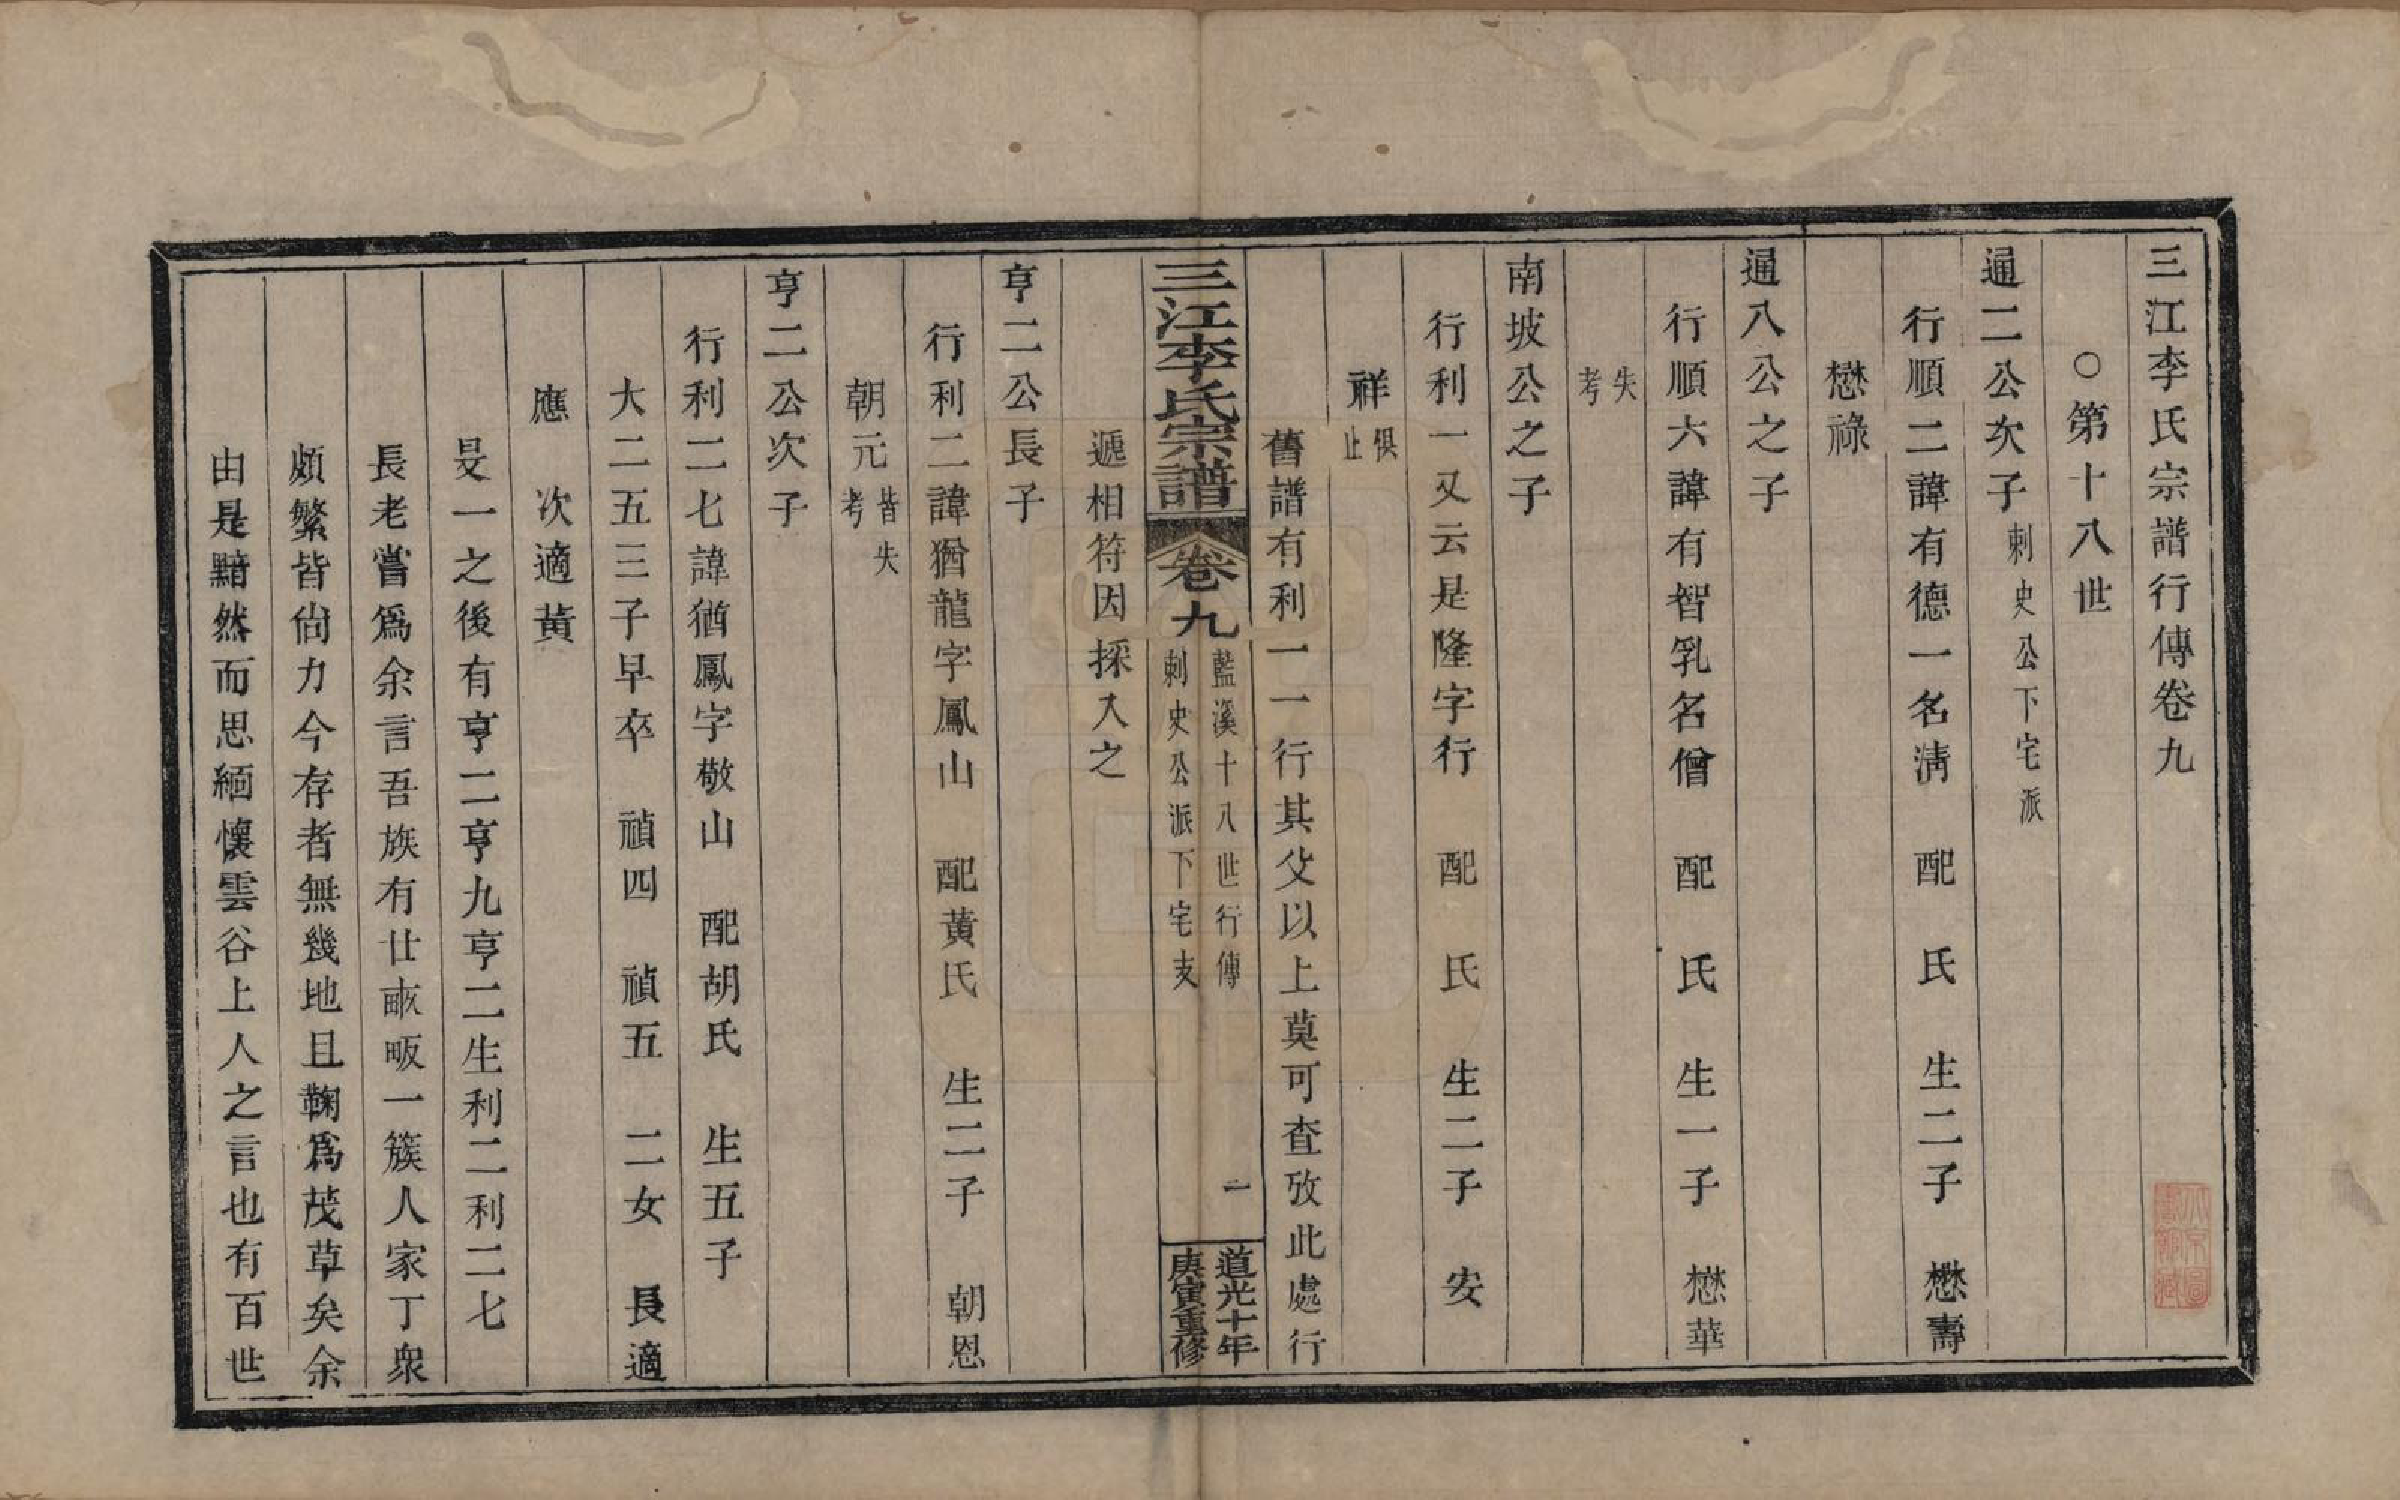 三江李氏宗譜行傳卷九
○第十八世
通二公次子刺史公下宅派
行順二諱有德一名淸　配　氏　生二子　懋壽
懋祿
通八公之子
行順六諱有智乳名僧　配　氏　生一子　懋華
失考
南坡公之子
行利一又云是隆字行　配　氏　生二子　安
祥俱止
舊譜有利一一行其父以上莫可查攷此處行
三江李氏宗譜
卷九
藍溪十八世行傳
刺史公派下宅支
一
道光十年
庚寅重修
遞相符因採入之
亨二公長子
行利二諱猶龍字鳳山　配黃氏　生二子　朝恩
朝元皆失考
亨二公次子
行利二七諱猶鳳字敬山　配胡氏　生五子
大二五三子早卒　禎四　禎五　二女　長適
應　次適黃
旻一之後有亨二亨九亨二生利二利二七
長老嘗爲余言吾族有廿畝畈一簇人家丁衆
頗繁皆尙力今存者無幾地且鞠爲茂草矣余
由是黯然而思緬懷雲谷上人之言也有百世